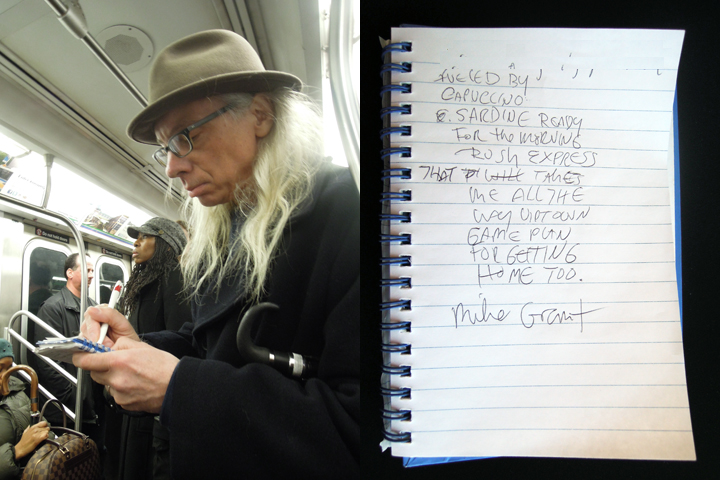 FUELED BY
CAPUCCINO
e. SARDINE READY
FOR the MORNING
RUSH EXPRESS
THAT TAKES
ME ALL THE
WAY UPTOWN
GAME PLAN
FOR GETTING
HOME TOO.
Mike Grant